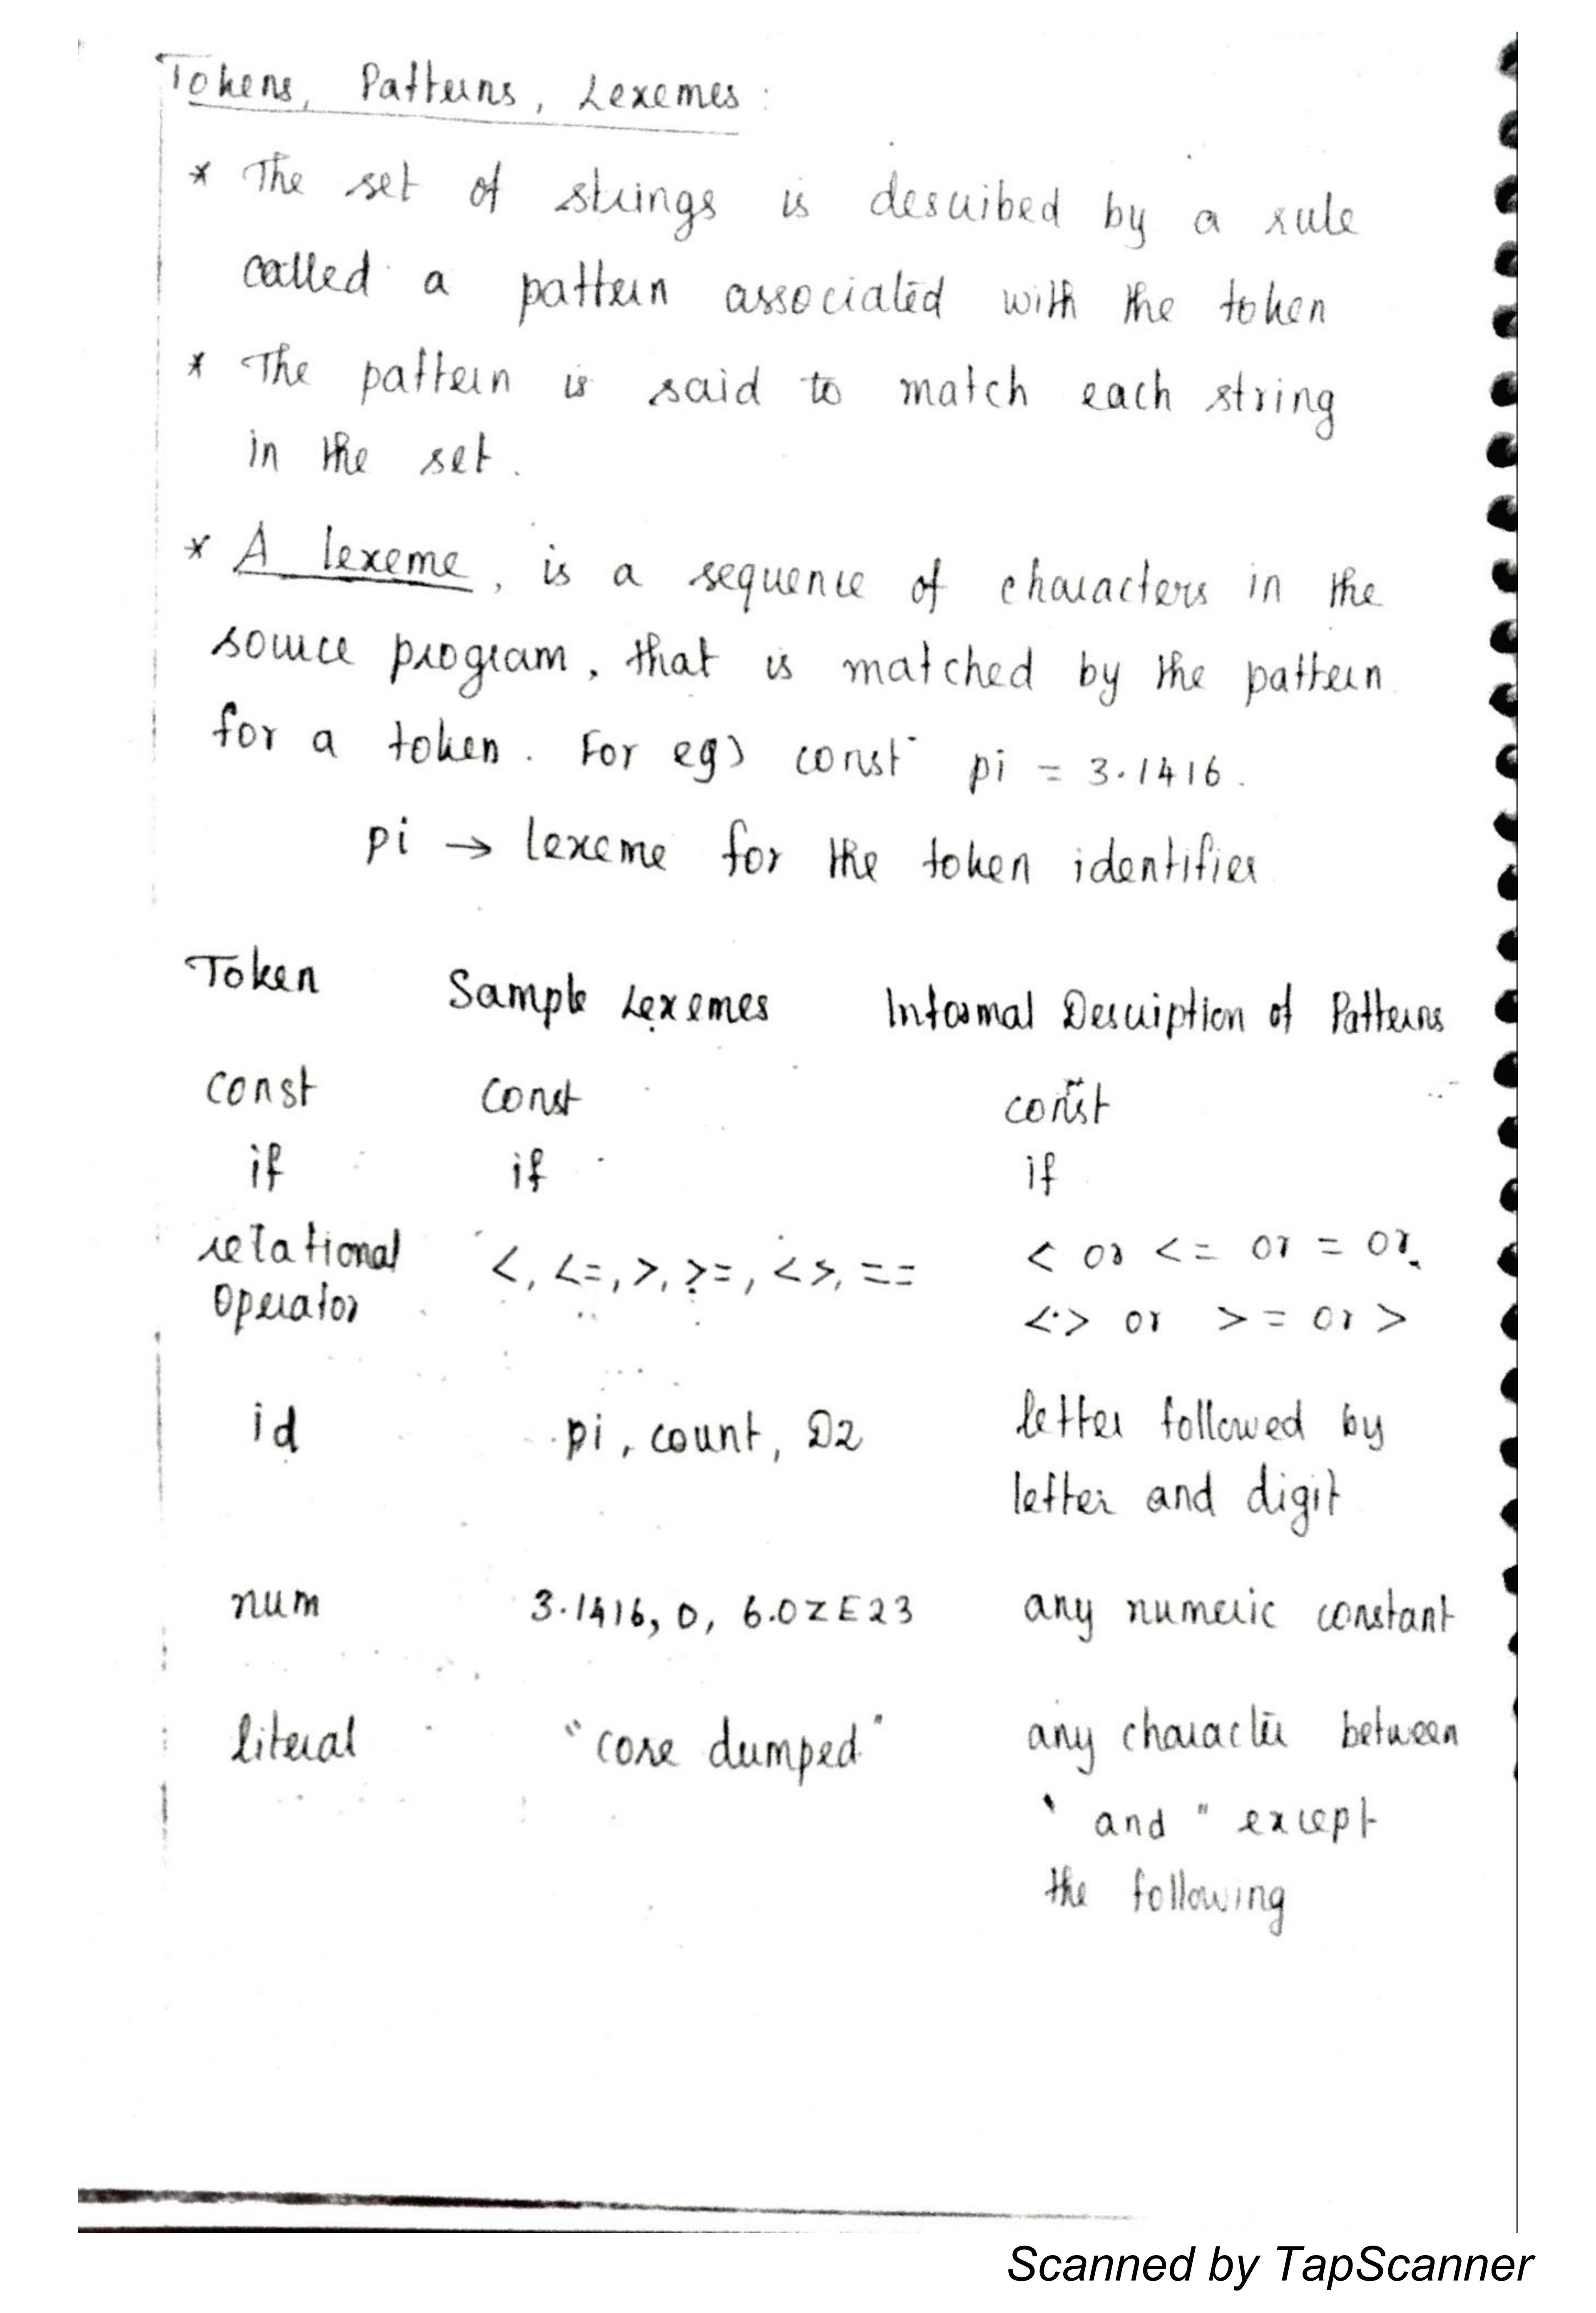 Tokens, Patterns, Lexemes :
* The set of strings is described by a rule
called a pattern associated with the token
* The pattern is said to match each string
in the set.
* A lexeme, is a sequence of characters in the
source program, that is matched by the pattern
for a token. For eg) const pi = 3.1416.
pi → lexeme for the token identifier
Token Sample Lexemes Informal Description of Patterns
const const const
if if if
relational <, <=, >, >=, <>, == < or <= or = or
operator <> or >= or >
id pi, count, D2 letter followed by
letter and digit
num 3.1416, 0, 6.0ZE23 any numeric constant
literal "core dumped" any character between
" and " except
the following
Scanned by TapScanner